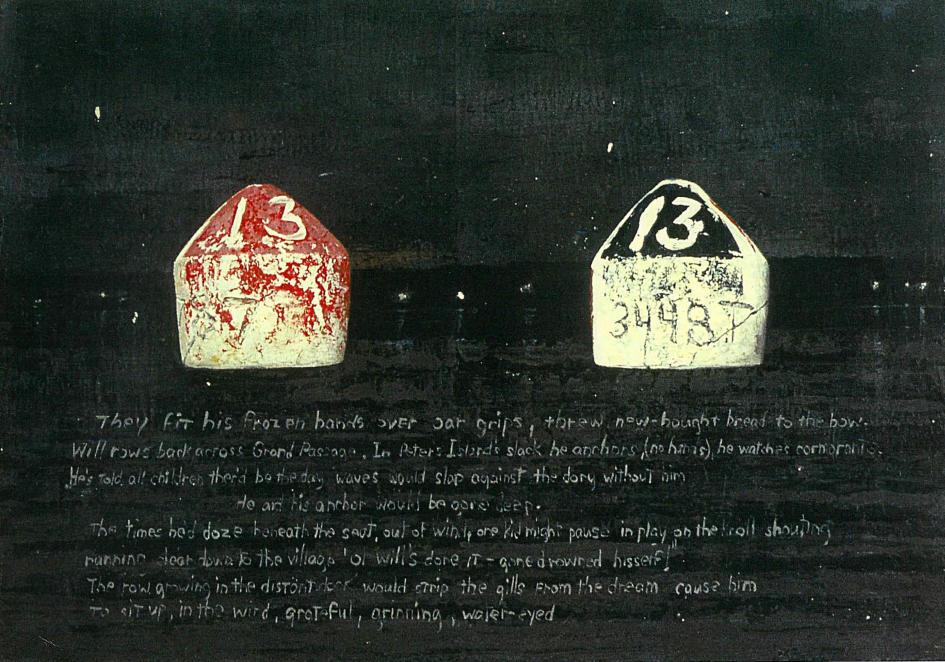 13
13
3448
They fit his frozen hands over oar grips, threw new-bought bread to the bow.
Will rows back across Grand Passage. In Peters Island's slack he anchors, (no hands), he watches cormorants.
He's told all children there'd be the day waves would slap against the dory without him
He and his anchor would be gone deep.
The times he'd doze beneath the seat, out of wind, one kid might pause in play on the knoll shouting
running clear down to the village 'ol Will's done it - gone drowned hisself!
The row growing in the distant dark would strip the gills from the dream cause him
to sit up, in the wind, grateful, grinning, water-eyed